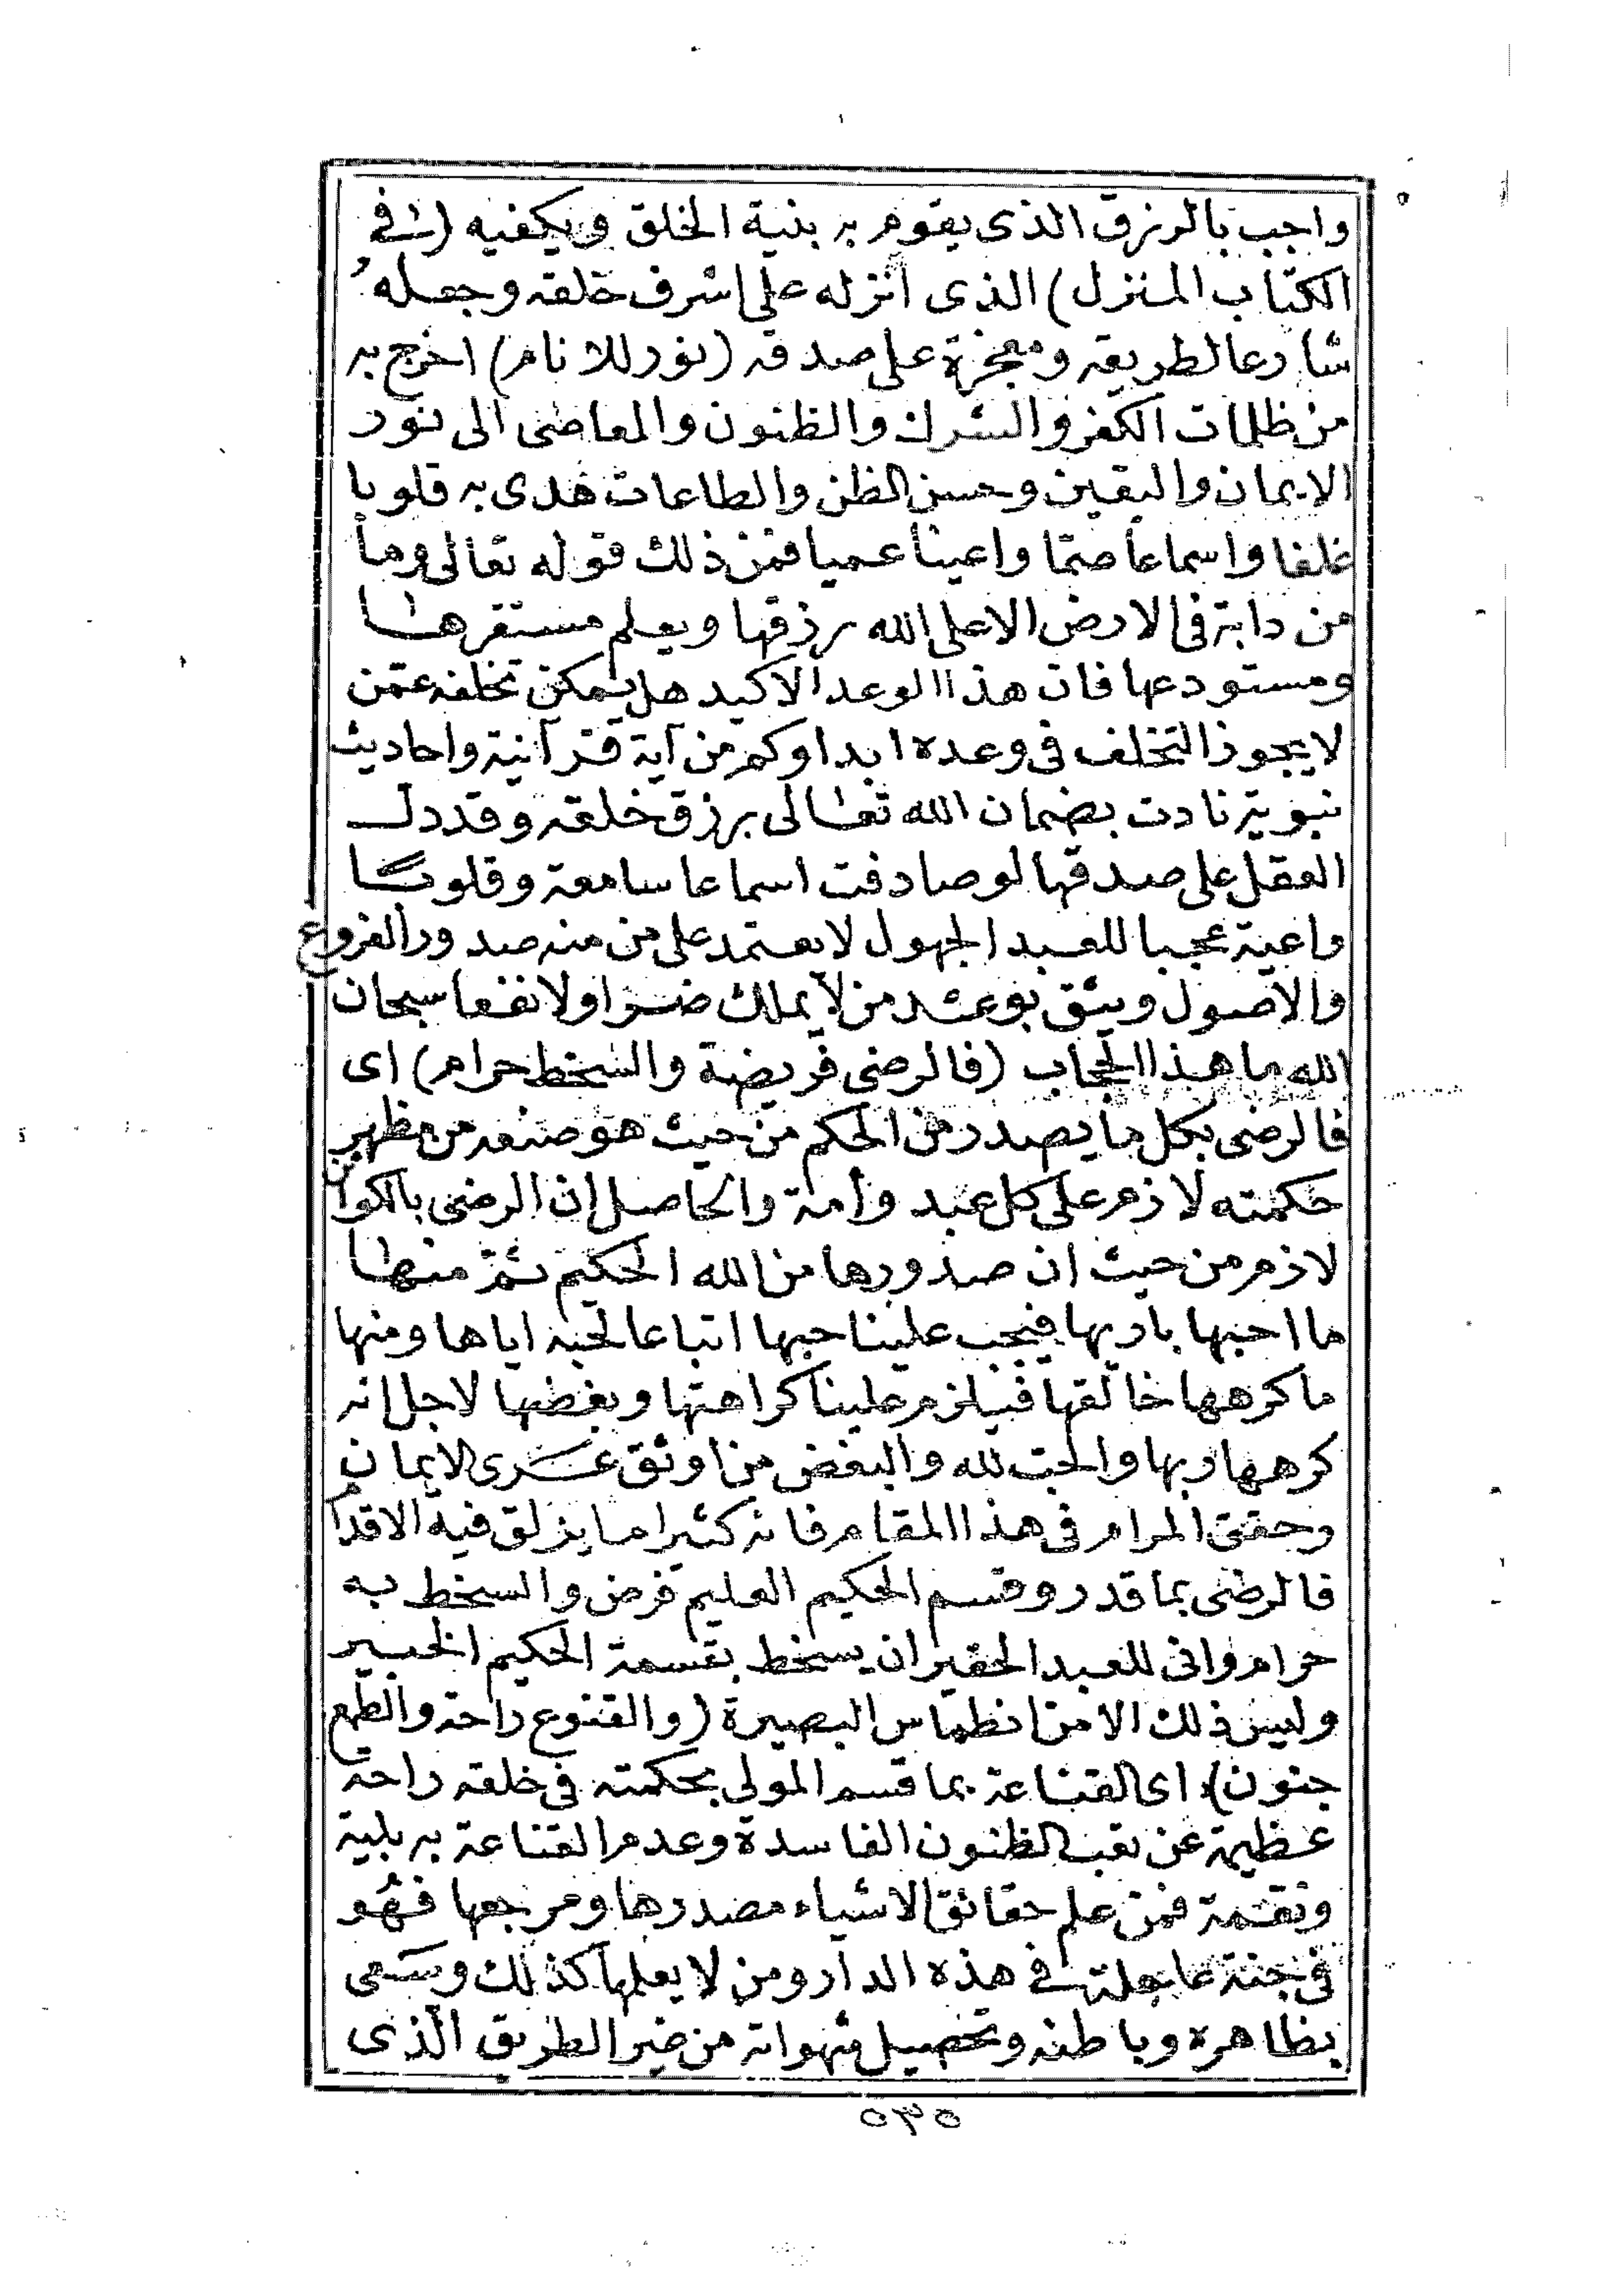 واجب بالرزق الذى يقوم به بنية الخلق ويكفيه (في
الكتاب المنزل) الذى انزله على اشرف خلقه وجعله
شارعا لطريقه ومعجزة على صدقه (نور للانام) اخرج به
من ظلمات الكفر والشرك والظنون والمعاصى الى نور
الايمان واليقين وحسن الظن والطاعات هدى به قلوبا
غلفا واسماعا صمّا واعينا عميا فمن ذلك قوله تعالى وما
من دابة فى الارض الا على الله رزقها ويعلم مستقرها
ومستودعها فان هذا الوعد الاكيد هل يمكن تخلفه عمّن
لا يجوز التخلف فى وعده ابدا وكم من آية قرآنية واحاديث
نبوية نادت بضمان الله تعالى برزق خلقه وقد دل
العقل على صدقها لو صادفت اسماعا سامعة وقلوبا
واعية عجبا للعبد الجهول لا يعتمد على من منه صدور الفروع
والاصول ويثق بوعد من لا يملك ضرا ولا نفعا سبحان
الله ما هذا الحجاب (فالرضى فريضة والسخط حرام) اى
فالرضى بكل ما يصدر من الحكم من حيث هو صنعه من مظهر
حكمته لازم على كل عبد وأمة والحاصل ان الرضى بالكوائن
لازم من حيث ان صدورها من الله الحكيم ثمّ منها
ما احبها باريها فيجب علينا حبها اتباعا لحبه اياها ومنها
ما كرهها خالقها فيلزم علينا كراهتها وبغضها لاجل انه
كرهها ربها والحب لله والبغض من اوثق عرى الايمان
وحقق المرام فى هذا المقام فانه كثيرا ما يزلق فيه الاقدام
فالرضى بما قدر وقسم الحكيم العليم فرض والسخط به
حرام وانى للعبد الحقير ان يسخط بقسمة الحكيم الخبير
وليس ذلك الا من انطماس البصيرة (والقنوع راحة والطمع
جنون) اى القناعة بما قسم المولى بحكمته فى خلقه راحة
عظيمة عن تعب الظنون الفاسدة وعدم القناعة به بلية
ونقمة فمن علم حقائق الاشياء مصدرها ومرجعها فهو
فى جنة عاجلة في هذه الدار ومن لا يعلمها كذلك وسعى
بظاهره وباطنه وتحصيل شهواته من غير الطريق الّذى
٥٣٥